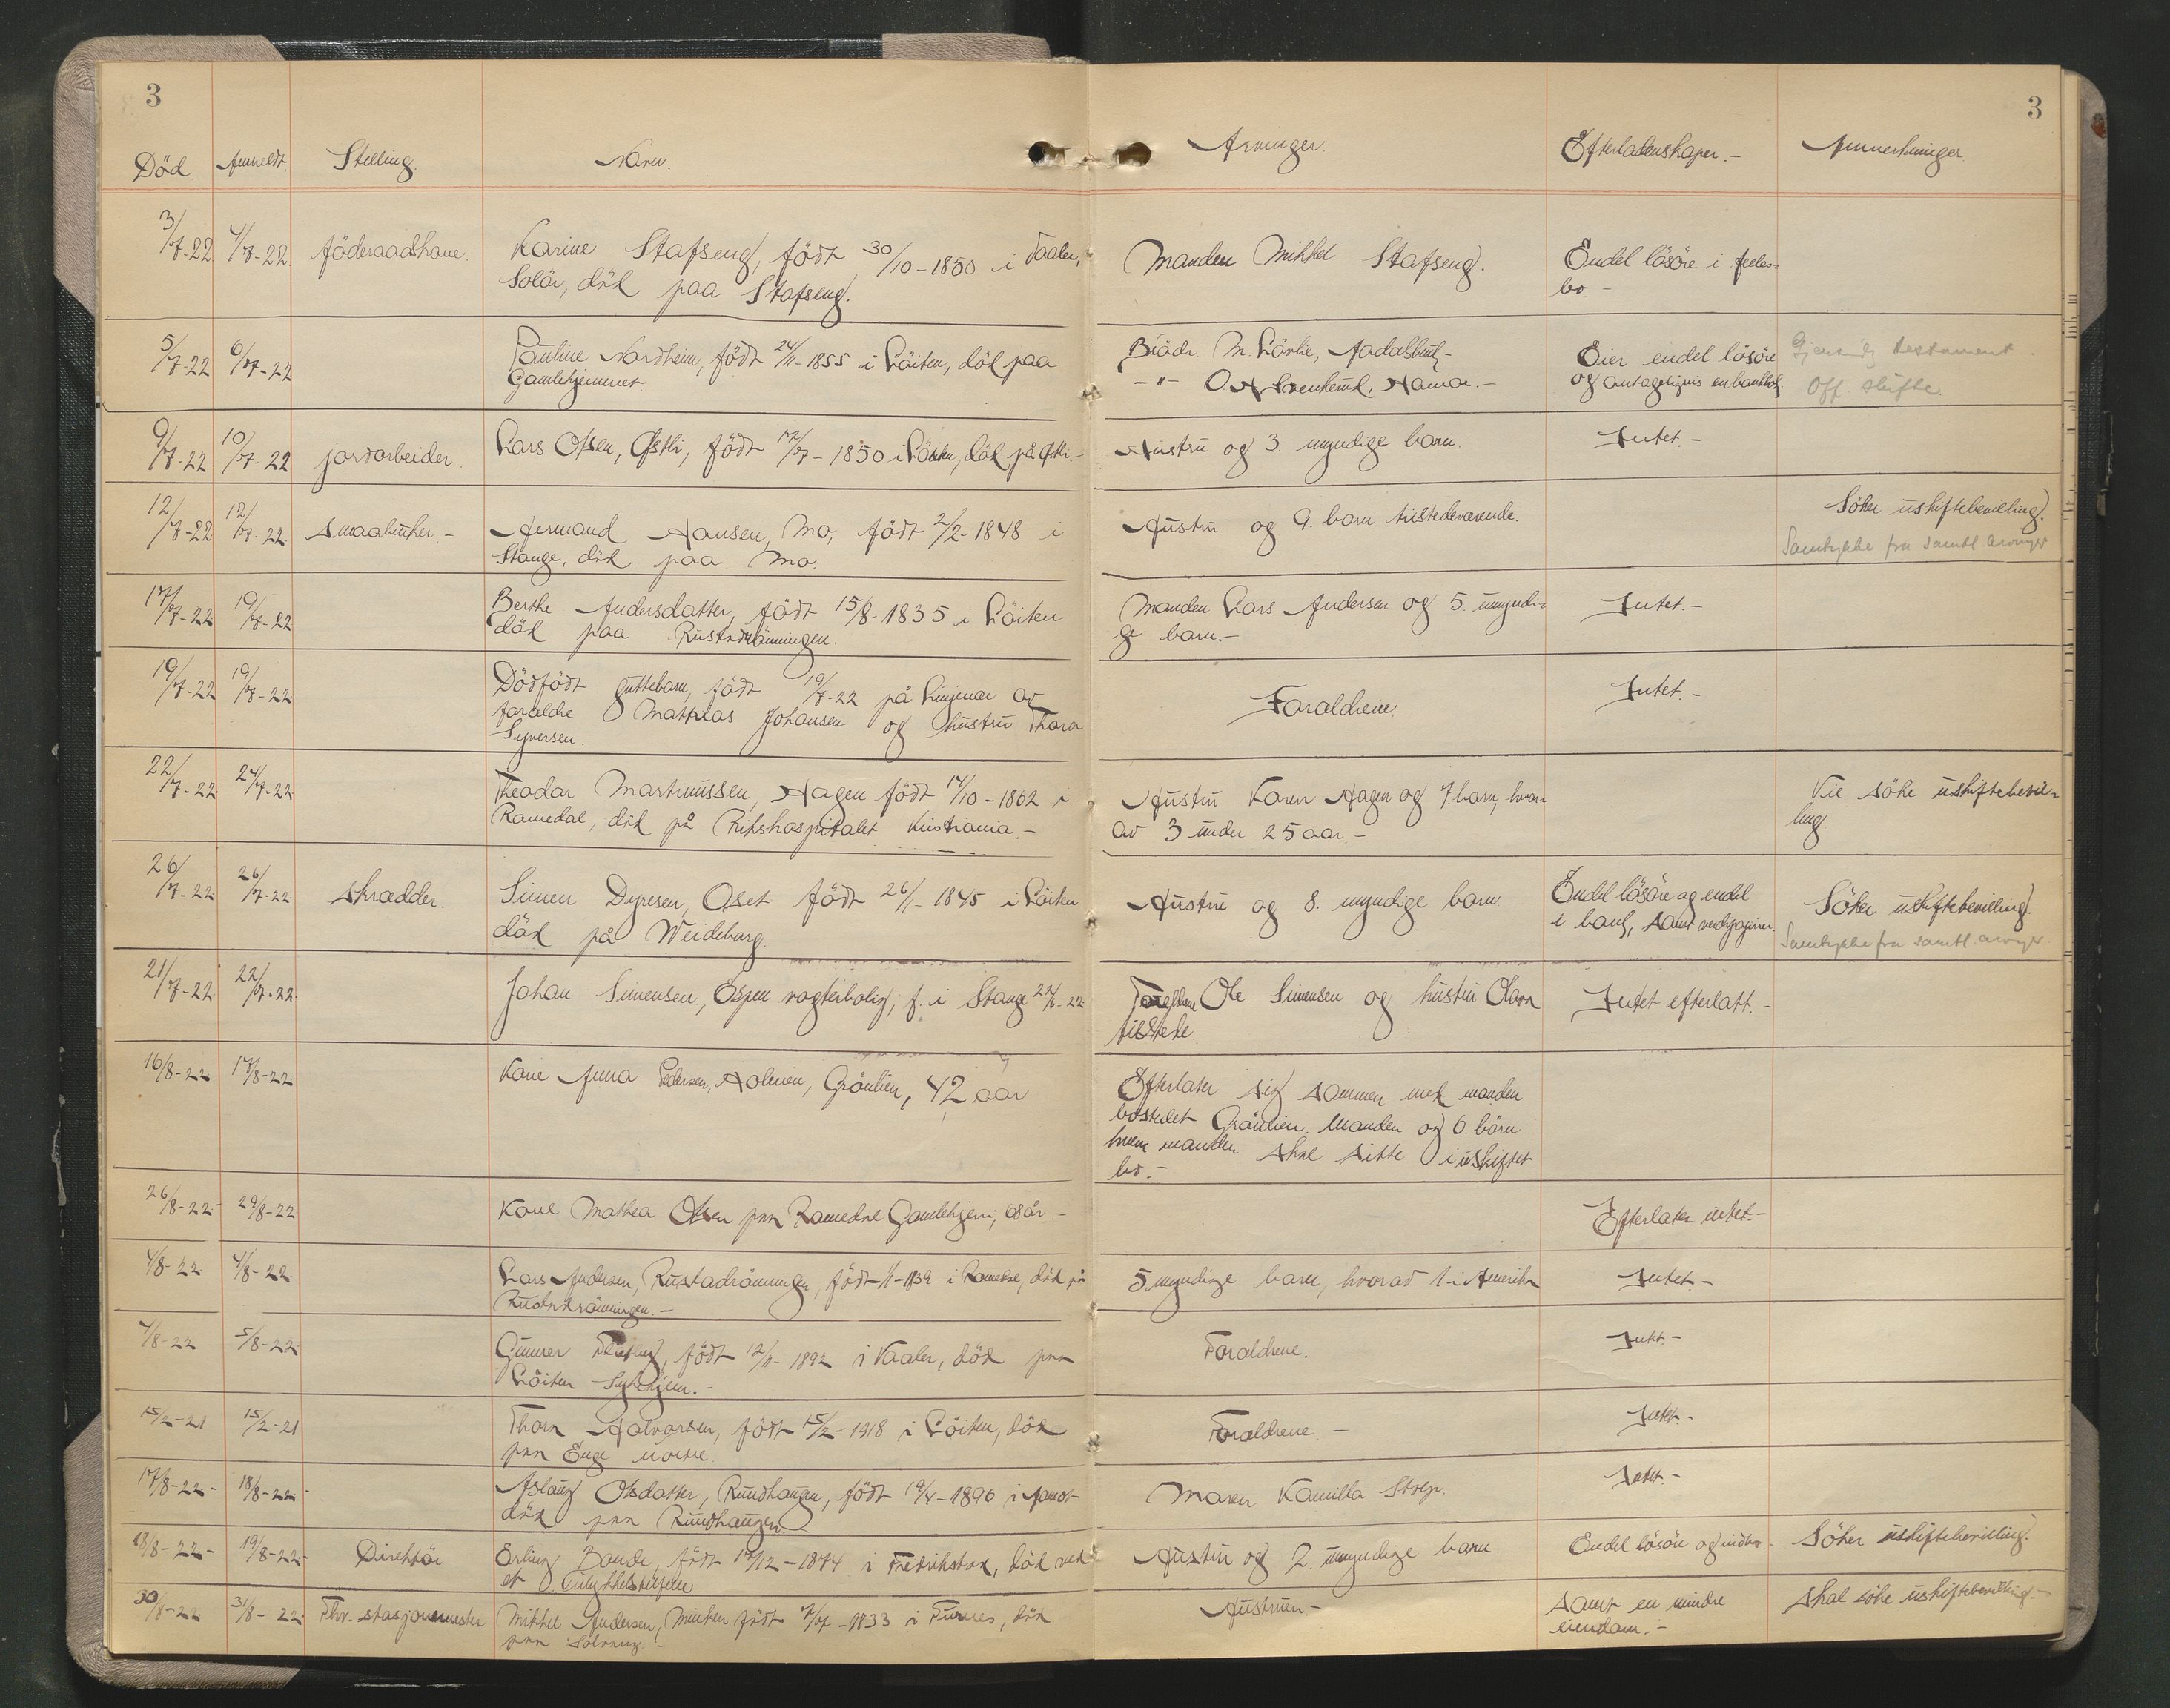 3
3
Död. Anmeldt. Stilling. Navn. Arvinger. Efterladenskaper.- Anmerkninger.
3/7-22 4/7-22 föderaadskone. Karine Stafseng, födt 30/10-1850 i Vaaler, Manden Mikkel Stafseng. Endel lösöre i felles-
Solör, död paa Stafseng. bo.-
5/7-22 6/7-22 Pauline Nordheim, födt 24/11-1855 i Löiten, död paa Brödr. M. Lörke, Aadalsbruk,- Eier endel lösöre Gjensidig testament
Gamlehjemmet. -"- Hamar.- og antageligvis en bankbok Off. skifte.
9/7-22 10/7-22 jordarbeider. Lars Olsen, Østli, födt 17/7-1850 i Löiten, död på Østli.- Hustru og 3 myndige barn. Intet.-
12/7-22 12/7-22 smaabruker.- Hermand Hansen, Mo, födt 2/2-1848 i Hustru og 9. barn tilstedeværende. Söker uskiftebevilling.
Stange, död paa Mo. Samtykke fra samtl. arvinger
17/7-22 19/7-22 Berthe Andersdatter, födt 15/8-1835 i Löiten Manden Lars Andersen og 5. myndi- Intet.-
död paa Rustadrönningen. ge barn.-
19/7-22 19/7-22 Dödfödt guttebarn, födt 19/7-22 på Linjemar av Foraldrene. Intet.-
foraldre Mathias Johansen og hustru Thora
Syversen.
22/7-22 24/7-22 Theodor Martinussen, Hagen födt 14/10-1862 i Hustru Karen Hagen og 7 barn, hvor- Vil söke uskiftebevil-
Romedal, död på Rikshospitalet Kristiania.- av 3 under 25 aar.- ling
26/7-22 26/7-22 skrædder. Simen Dyresen, Oset födt 26/1-1845 i Löiten Hustru og 8. myndige barn. Endel lösöre og endel Söker uskiftebevilling.
död på Weideborg. i bank, samt verdipapirer. Samtykke fra samtl. arvinger.
21/7-22 22/7-22 Johan Simensen, Espen vogterbolig, f. i Stange 22/6-22 Foreldrene Ole Simensen og hustru Olava Intet efterlatt.-
tilstede.
16/8-22 17/8-22 Kone Anna Pedersen, Holmen, Grönlien, 42 aar Efterlater sig sammen med manden
bostedet Grönlien. Manden og 6. börn
hvem manden skal sitte i uskiftet
bo.-
26/8-22- 29/8-22 Kone Mathea Olsen paa Romedal Gamlehjem, 68 år.- Efterlater intet.-
4/8-22 4/8-22 Lars Andersen, Rustadrönningen, födt 1/1-1839 i Romedal, död på 5 myndige barn, hvorav 1 i Amerika Intet.-
Rustadrönningen.-
4/8-22 5/8-22 Gunner födt 12/11-1892 i Vaaler, död paa Foraldrene. Intet-
Löiten Sykehjem.-
15/2-21 15/2-21 Thora Halvorsen, födt 15/2-1918 i Löiten, död Foraldrene.- Intet.-
paa Enge nordre.
17/8-22- 18/8-22- Aslaug Olsdatter, Rundhaugen, födt 19/4-1890 i Aamot Moren Kamilla Stolp. Intet-
död paa Rundhaugen
18/8-22- 19/8-22- Direktör Erling Bande, födt 17/12-1874 i Fredrikstad, död ved Hustru og 2 umyndige barn. Endel lösöre og indbo.- Söker uskiftebevilling.
et ulykkelstilfelle
30/8-22 31/8-22 Fhv. stasjonsmester Mikkel Andersen, födt 7/7-1833 i Furnes, död Hustruen- Samt en mindre Skal söke uskiftebevilling.-
paa Solvang.- eiendom.-